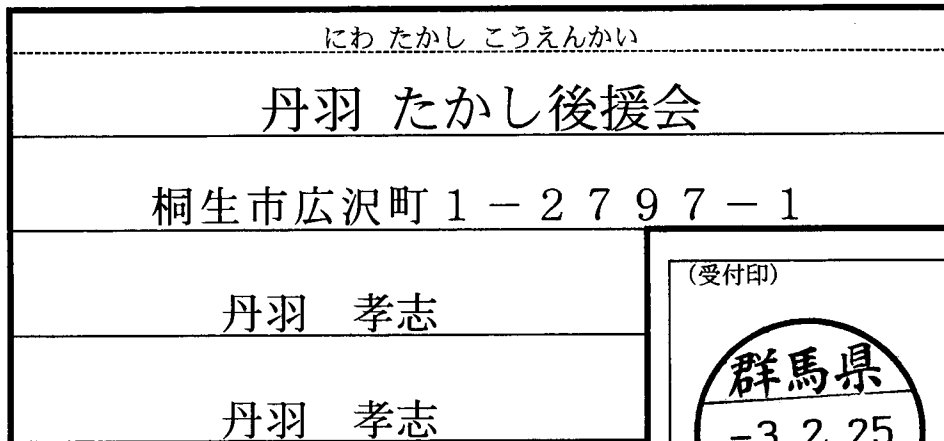 にわ たかし こうえんかい
丹羽 たかし後援会
桐生市広沢町1-2797-1
丹羽 孝志
(受付印)
群馬県
丹羽 孝志
-3.2.25